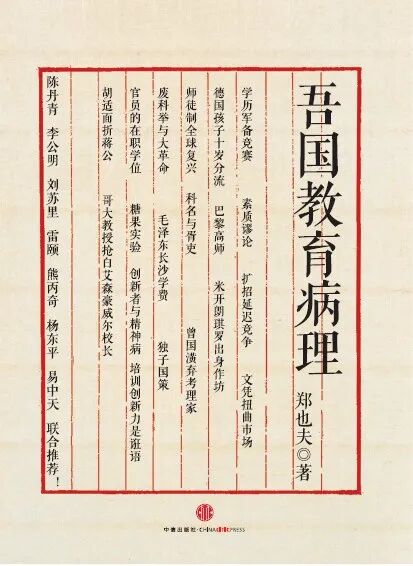 吾国教育病理
郑也夫◎著
学历军备竞赛 素质谬论 扩招延迟竞争 文凭扭曲市场
德国孩子十岁分流 巴黎高师 米开朗琪罗出身作坊
师徒制全球复兴 科名与胥吏 曾国潢弃考理家
废科举与大革命 毛泽东长沙学费 独子国策
官员的在职学位 糖果实验 创新者与精神病 培训创新力是诳语
胡适面折蒋公 哥大教授抢白艾森豪威尔校长
陈丹青 李公明 刘苏里 雷颐 熊丙奇 杨东平 易中天 联合推荐！
中信出版社·CHINA CITIC PRESS